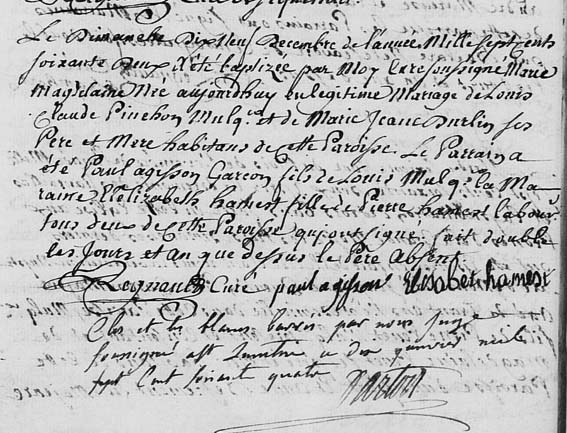 Le Dimanche Dix Neuf Decembre de l'annee Mille sept cents
soixante deux a été baptizée par Moy Curé soussigné Marie
Magdelaine Née aujourdhuy en legitime Mariage de Louis
Claude Pinebon Mulqr. et de Marie Jeane Durlin ses
Pere et Mere habitans de cette Paroisse. Le Parrain a
été Paul agisson Garcon fils de Louis Mulqr. la Ma
raine Elizabeth hamest fille de Pierre hamest labour
tous deux de cette Paroisse qui ont signé fait double
les Jours et an que dessus le Pere Absent.
Reignault Curé paul agisson Elisabet hamest
Clos et les blancs barrés par nous Juge
soussigné a dix janvier mile
sept Cent soixante quatre